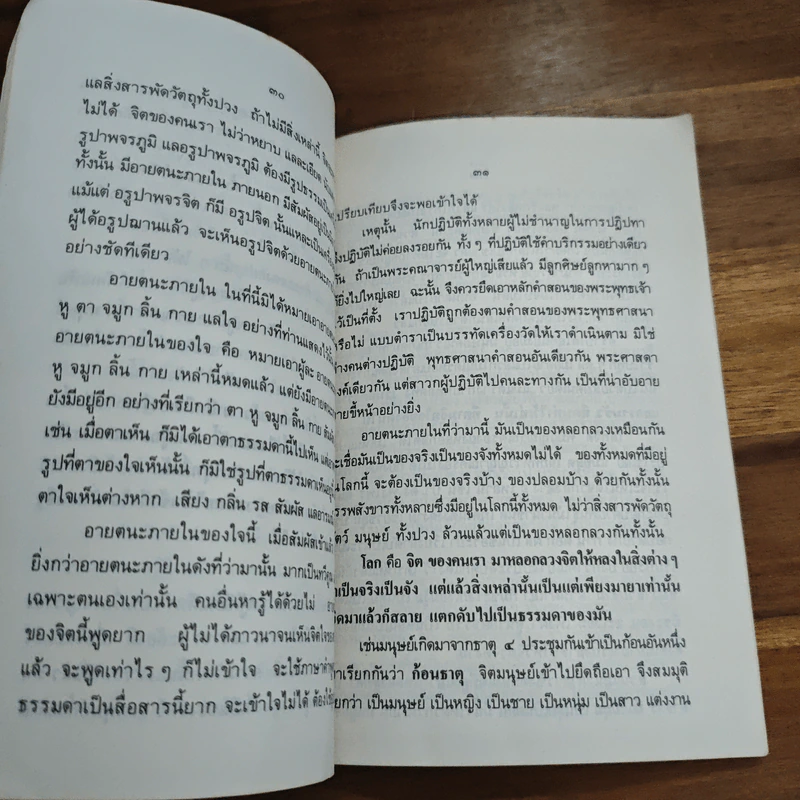 ๓๐
แลสิ่งสารพัดวัตถุทั้งปวง ถ้าไม่มีสิ่งเหล่านี้
ไม่ได้ จิตของคนเรา ไม่ว่าหยาบ แลละเอียด
รูปาพจรภูมิ แลอรูปาพจรภูมิ ต้องมีรูปธรรมเป็น
ทั้งนั้น มีอายตนะภายใน ภายนอก มีสัมผัสอยู่เป็น
แม้แต่ อรูปาพจรจิต ก็มี อรูปจิต นั้นแหละเป็น
ผู้ได้อรูปฌานแล้ว จะเห็นอรูปจิตด้วยอายตนะ
อย่างชัดทีเดียว
อายตนะภายใน ในที่นี้มิได้หมายเอา
หู ตา จมูก ลิ้น กาย แลใจ อย่างที่ท่านแสดงไว้
อายตนะภายในของใจ คือ หมายเอาผู้ละ
หู จมูก ลิ้น กาย เหล่านี้หมดแล้ว แต่ยังมี
ยังมีอยู่อีก อย่างที่เรียกว่า ตา หู จมูก ลิ้น กาย
เช่น เมื่อตาเห็น ก็มิได้เอาตาธรรมดานี้ไปเห็น
รูปที่ตาของใจเห็นนั้น ก็มิใช่รูปที่ตาธรรมดาเห็น
ตาใจเห็นต่างหาก เสียง กลิ่น รส สัมผัส
อายตนะภายในของใจนี้ เมื่อสัมผัสเข้าแล้ว
ยิ่งกว่าอายตนะภายในดังที่ว่ามานั้น มากเป็นทวีคูณ
เฉพาะตนเองเท่านั้น คนอื่นหารู้ได้ด้วยไม่
ของจิตนี้พูดยาก ผู้ไม่ได้ภาวนาจนเห็นจิตใจ
แล้ว จะพูดเท่าไร ๆ ก็ไม่เข้าใจ จะใช้ภาษา
ธรรมดาเป็นสื่อสารนี้ยาก จะเข้าใจไม่ได้ ต้อง
๓๑
เปรียบเทียบจึงจะพอเข้าใจได้
เหตุนั้น นักปฏิบัติทั้งหลายผู้ไม่ชำนาญในการปฏิปทา
จึงปฏิบัติไม่ค่อยลงรอยกัน ทั้ง ๆ ที่ปฏิบัติใช้คำบริกรรมอย่างเดียว
กัน ถ้าเป็นพระคณาจารย์ผู้ใหญ่เสียแล้ว มีลูกศิษย์ลูกหามาก ๆ
ยิ่งไปใหญ่เลย ฉะนั้น จึงควรยึดเอาหลักคำสอนของพระพุทธเจ้า
ไว้เป็นที่ตั้ง เราปฏิบัติถูกต้องตามคำสอนของพระพุทธศาสนา
หรือไม่ แบบตำราเป็นบรรทัดเครื่องวัดให้เราดำเนินตาม มิใช่
ต่างคนต่างปฏิบัติ พุทธศาสนาคำสอนอันเดียวกัน พระศาสดา
องค์เดียวกัน แต่สาวกผู้ปฏิบัติไปคนละทางกัน เป็นที่น่าอับอาย
ขายขี้หน้าอย่างยิ่ง
อายตนะภายในที่ว่ามานี้ มันเป็นของหลอกลวงเหมือนกัน
จะเชื่อมันเป็นของจริงเป็นของจังทั้งหมดไม่ได้ ของทั้งหมดที่มีอยู่
ในโลกนี้ จะต้องเป็นของจริงบ้าง ของปลอมบ้าง ด้วยกันทั้งนั้น
สรรพสังขารทั้งหลายซึ่งมีอยู่ในโลกนี้ทั้งหมด ไม่ว่าสิ่งสารพัดวัตถุ
สัตว์ มนุษย์ ทั้งปวง ล้วนแล้วแต่เป็นของหลอกลวงกันทั้งนั้น
โลก คือ จิต ของคนเรา มาหลอกลวงจิตให้หลงในสิ่งต่าง ๆ
ว่าเป็นจริงเป็นจัง แต่แล้วสิ่งเหล่านั้นเป็นแต่เพียงมายาเท่านั้น
เกิดมาแล้วก็สลาย แตกดับไปเป็นธรรมดาของมัน
เช่นมนุษย์เกิดมาจากธาตุ ๔ ประชุมกันเข้าเป็นก้อนอันหนึ่ง
เขาเรียกกันว่า ก้อนธาตุ จิตมนุษย์เข้าไปยึดถือเอา จึงสมมุติ
เรียกว่า เป็นมนุษย์ เป็นหญิง เป็นชาย เป็นหนุ่ม เป็นสาว แต่งงาน